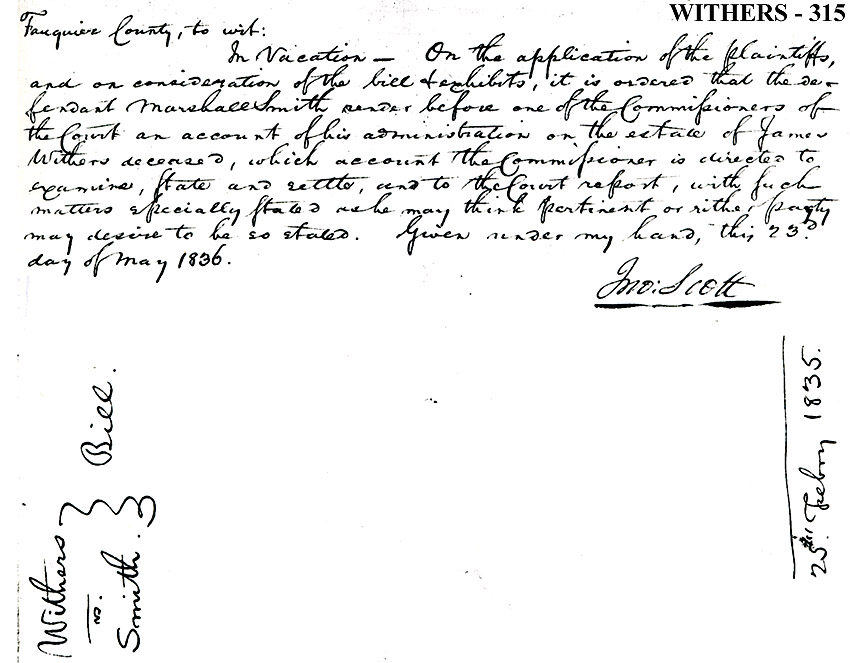 WITHERS - 315
Fauquier County, to wit:
In Vacation — On the application of the plaintiffs,
and on consideration of the bill & exhibits, it is ordered that the de-
fendant Marshall Smith render before one of the Commissioners of
the Court an account of his administration on the estate of James
Withers deceased, which account the Commissioner is directed to
examine, state and settle, and to the Court report, with such
matters specially stated as he may think pertinent or either party
may desire to be so stated. Given under my hand, this 23d
day of May 1836.
Jno: Scott
Withers
vs.
Smith.
Bill.
25th Febry 1835.